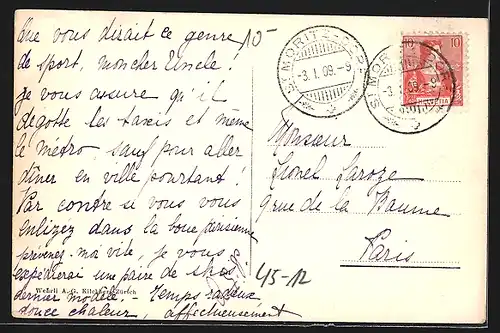 Que vous dirait ce genre
de sport, mon cher Uncle!
je vous assure qu'il
dégotte les taxis et même
le métro, sauf pour aller
dîner en ville pourtant!
Par contre si vous vous
enlizez dans la boue parisienne
prévenez-moi vite, je vous
expédierai une paire de skis
dernier modèle. - Temps radieux,
douce chaleur, affectueusement
10-
45-12
Wehrli A.-G. Kilchberg-Zürich
ST. MORITZ-DORF
-3.I.09.-9
ST. MORITZ-DORF
-3.I.09.-9
10 10
HELVETIA
Monsieur
Lionel Laroze
9 rue de la Baume
Paris